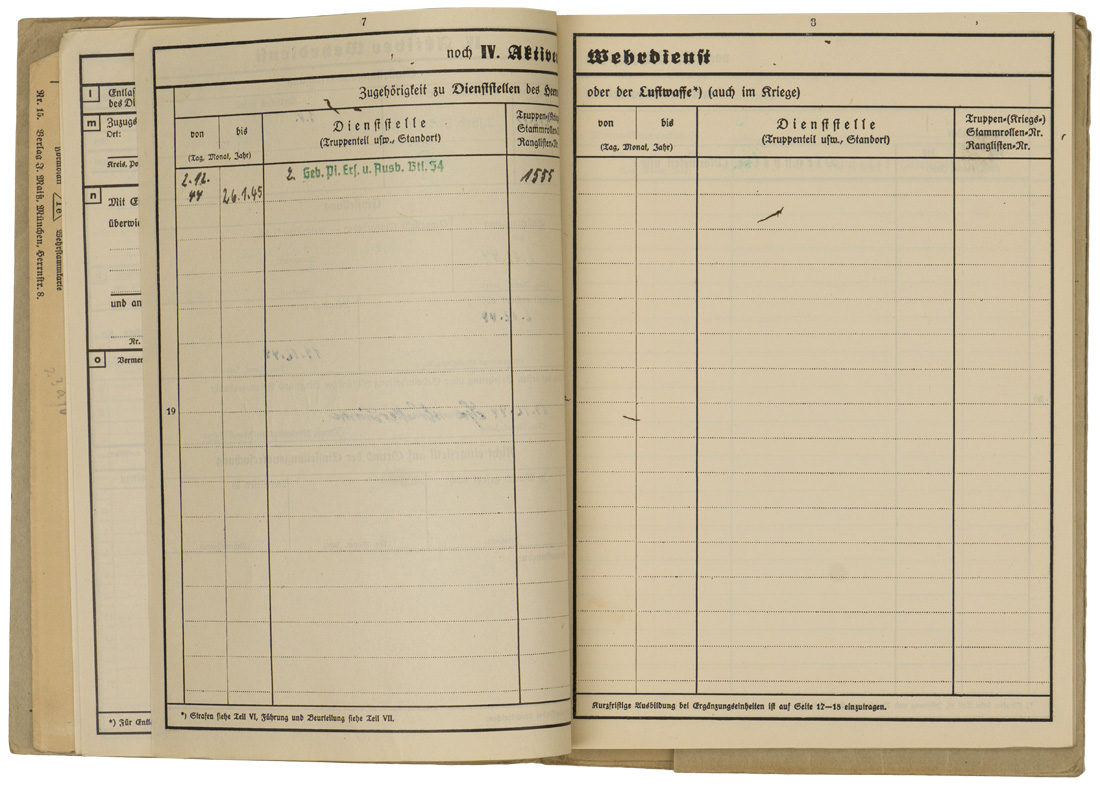 Nr. 15. Verlag J. Maiß, München, Herrnstr. 8.
Wehrstammkarte
l
Entlas
des Di
m
Zuzugs
Ort:
Kreis, Po
n
Mit E
überwie
und an
Nr.
o
Vermer
*) Für Entl
7
noch IV. Aktive
Zugehörigkeit zu Dienststellen des Heer
von
bis
(Tag, Monat, Jahr)
Dienststelle
(Truppenteil usw., Standort)
Truppen-(Krieg
Stammrollen-
Ranglisten-
2.12.
44
26.1.45
2. Geb. Pi. Ers. u. Ausb. Btl. 54
1555
19
*) Strafen siehe Teil VI, Führung und Beurteilung siehe Teil VII.
8
Wehrdienst
oder der Luftwaffe*) (auch im Kriege)
von
bis
(Tag, Monat, Jahr)
Dienststelle
(Truppenteil usw., Standort)
Truppen-(Kriegs-)
Stammrollen-Nr.
Ranglisten-Nr.
Kurzfristige Ausbildung bei Ergänzungseinheiten ist auf Seite 17—18 einzutragen.